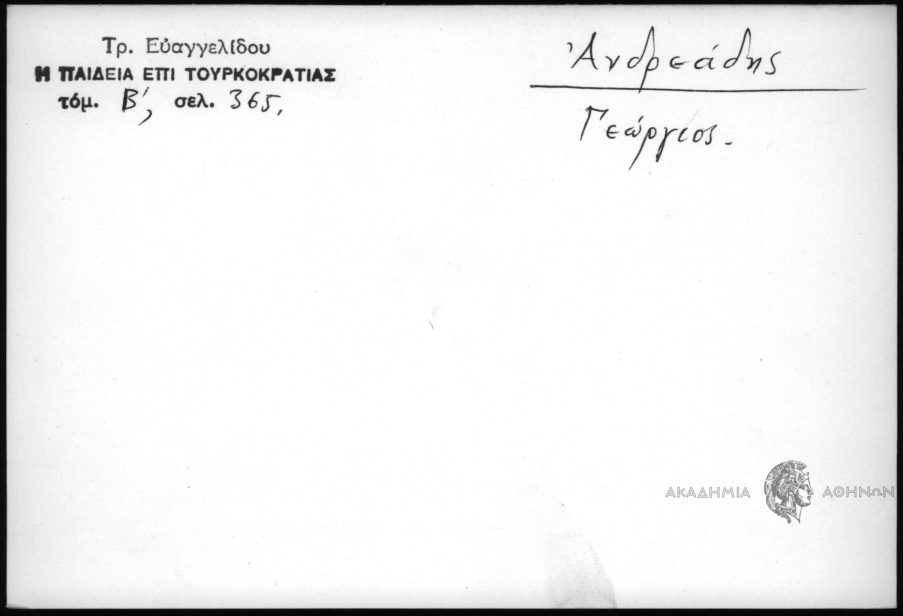 Τρ. Εὐαγγελίδου
Η ΠΑΙΔΕΙΑ ΕΠΙ ΤΟΥΡΚΟΚΡΑΤΙΑΣ
τόμ. Β', σελ. 365,
Ἀνδρεάδης
Γεώργιος.
ΑΚΑΔΗΜΙΑ ΑΘΗΝΩΝ